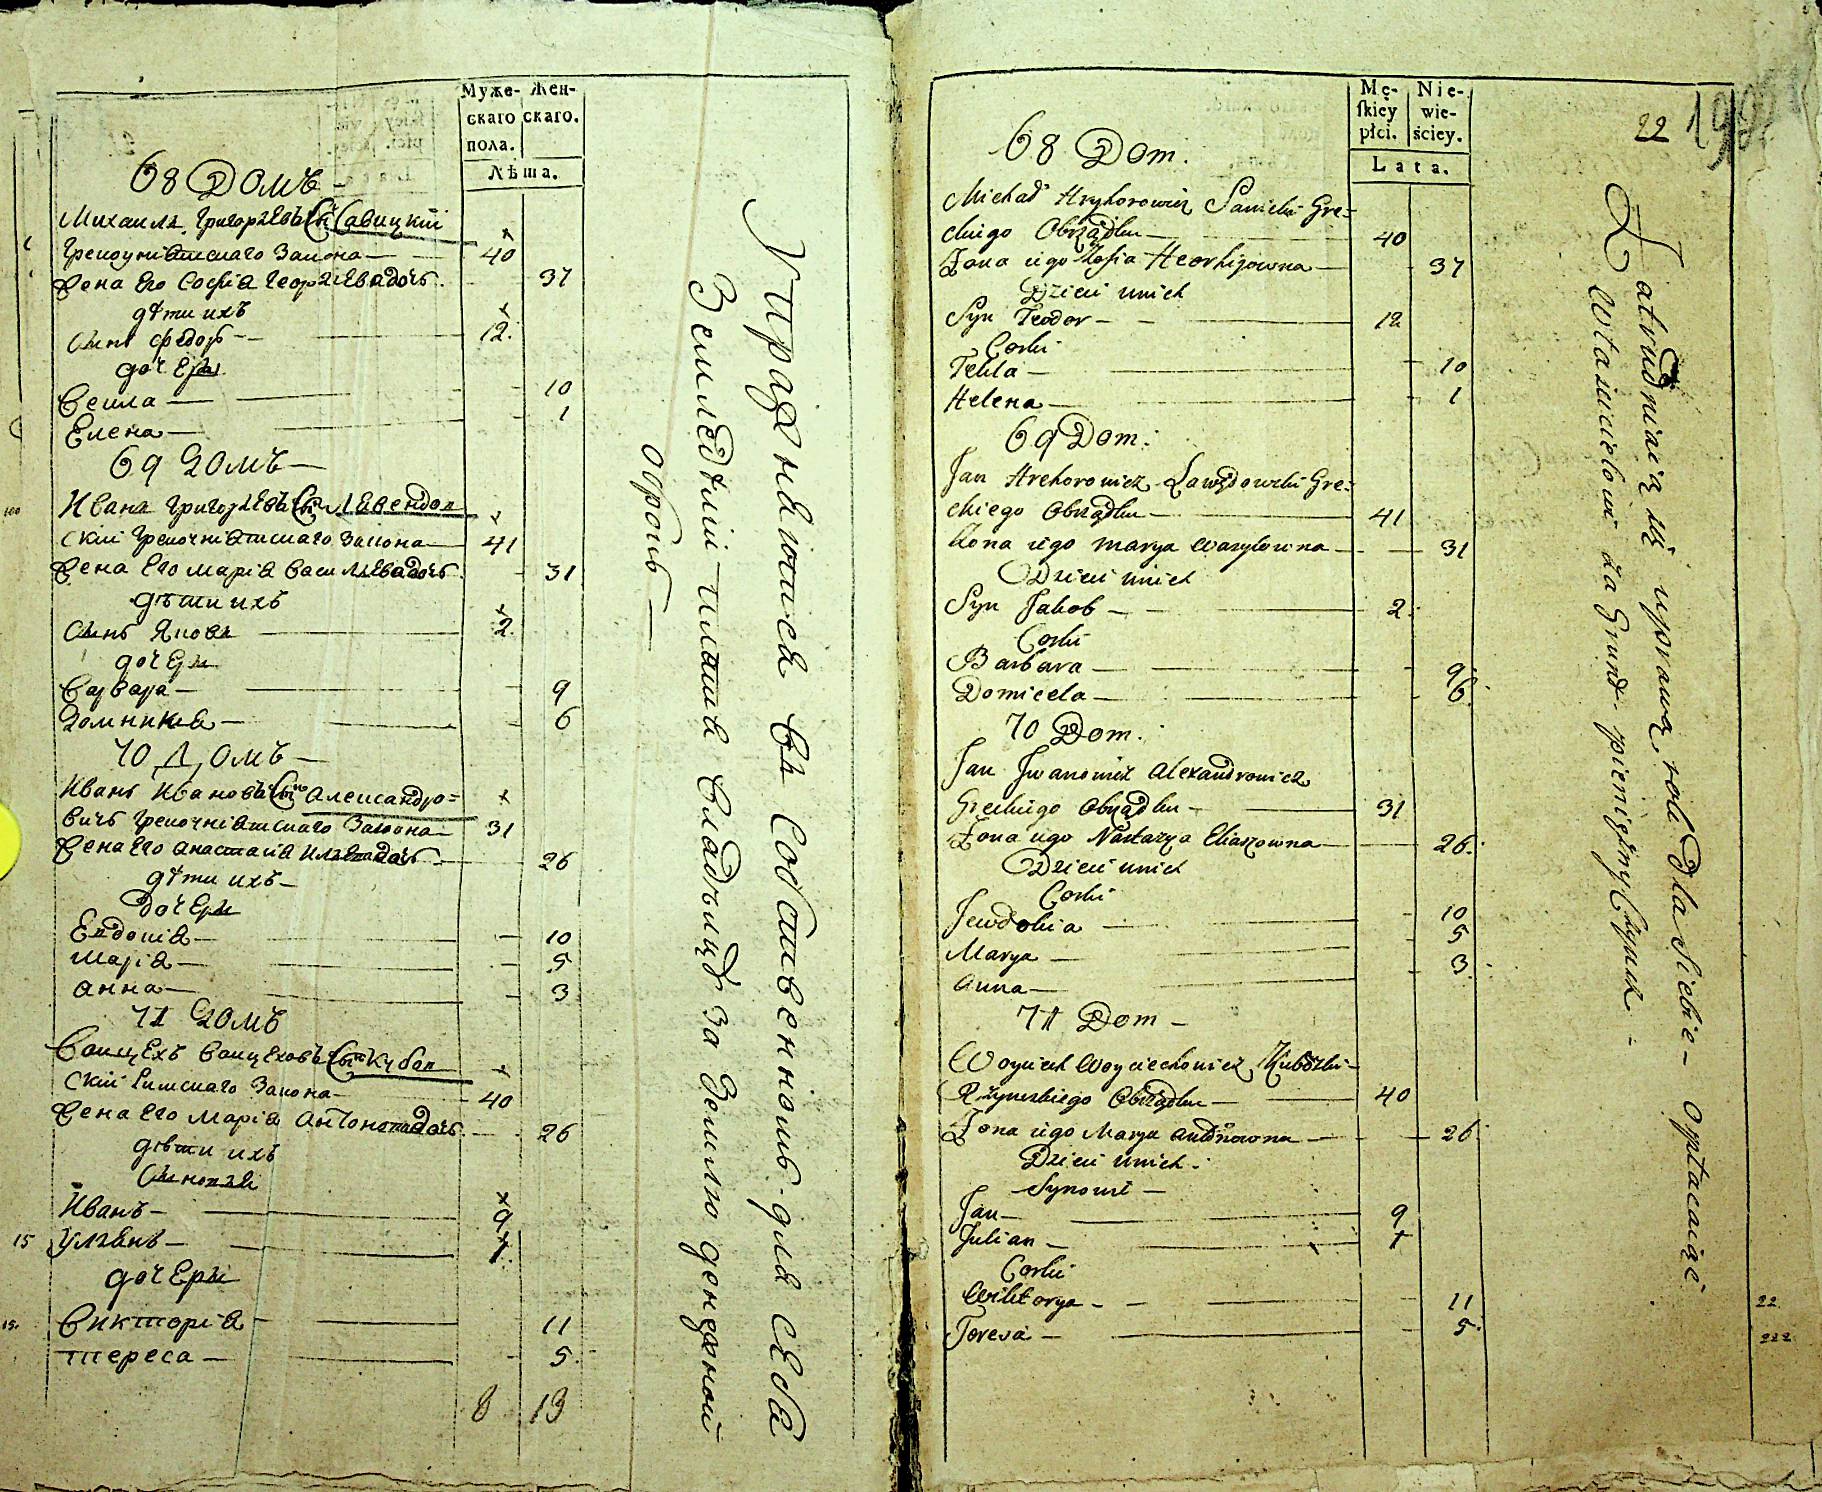 Муже- Жен-
скаго скаго.
пола.
Лѣта.
68 Домъ
Михаилъ Григорьевъ Сынъ Савицкій
Грекоуніятскаго Закона — 40
Жена Его Софія Георгіева дочь. 37
дѣти ихъ
Сынъ Федоръ — 12.
дочери
Текла — 10
Елена — 1
69 Домъ —
Иванъ Григорьевъ Сынъ Лавендов
скій Грекоуніятскаго Закона — 41
Жена Его Марія Васильева дочь. 31
дѣти ихъ
Сынъ Яковъ — 2.
дочери
Варвара — 9
Доминика — 6
70 Домъ —
Иванъ Ивановъ Сынъ Александро=
вичъ Грекоуніятскаго Закона — 31
Жена Его Анастасія Ильева дочь — 26
дѣти ихъ —
Дочери
Евдокія — 10
Марія — 5
Анна — 3
71 Домъ
Войцехъ Войцеховъ Сынъ Кубов
скій Римскаго Закона — 40
Жена Его Марія Антонова дочь. 26
дѣти ихъ
Сыновья
Иванъ — 9
15 Ульянъ — 1.
дочери
15. Викторія — 11
Тереса — 5.
8 13
Упражняются въ Собственномъ для себя
Земледѣліи платя Владѣльцу за Землю денежной
оброкъ —
Mę- Nie-
skiey wie-
płci. ściey.
Lata.
22
68 Dom.
Michał Hryhorowicz Sawicki Gre=
ckiego Obrządku — 40
Żona iego Zofia Heorhijowna — 37
Dzieci unich
Syn Teodor — 12
Corki
Tekla — 10
Helena — 1
69 Dom.
Jan Hrehorowicz Lawędowski Gre=
ckiego Obrządku — 41
Żona iego Marya Wasylowna — 31
Dzieci unich
Syn Jakob — 2.
Corki
Barbara — 9.
Domicela — 6.
70 Dom.
Jan Iwanowicz Alexandrowicz
Greckiego Obrządku — 31
Żona iego Nastazya Eliaszowna — 26.
Dzieci unich
Corki
Jewdokia — 10
Marya — 5
Anna — 3.
71 Dom —
Woyciech Woyciechowicz Kubowski
Rzymskiego Obrządku — 40
Żona iego Marya Antonowna — 26
Dzieci unich.
Synowie —
Jan — 9
Julian — 1
Corki
Wiktorya — 11
Teresa — 5.
Zatrudniaią się uprawą rol dla Siebie — Opłacaiąc
Właścicielowi za Grunt pieniężny Czynsz —
22.
222